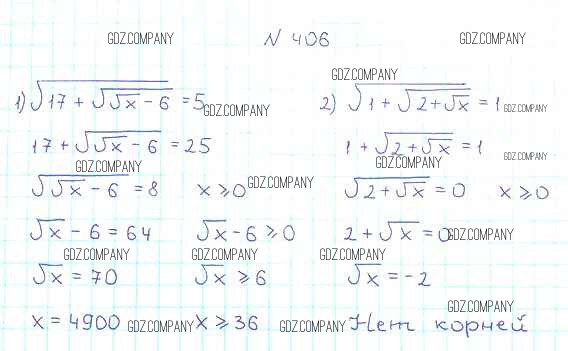 GDZ.COMPANY N 406 GDZ.COMPANY
GDZ.COMPANY
1) √(17 + √(√x - 6)) = 5 GDZ.COMPANY 2) √(1 + √(2 + √x)) = 1 GDZ.COMPANY
17 + √(√x - 6) = 25 1 + √(2 + √x) = 1
GDZ.COMPANY GDZ.COMPANY GDZ.COMPANY
√(√x - 6) = 8 x ≥ 0 GDZ.COMPANY √(2 + √x) = 0 x ≥ 0
√x - 6 = 64 √x - 6 ≥ 0 2 + √x = 0 GDZ.COMPANY
GDZ.COMPANY GDZ.COMPANY GDZ.COMPANY
√x = 70 √x ≥ 6 √x = -2
GDZ.COMPANY
x = 4900 GDZ.COMPANY x ≥ 36 GDZ.COMPANY Нет корней